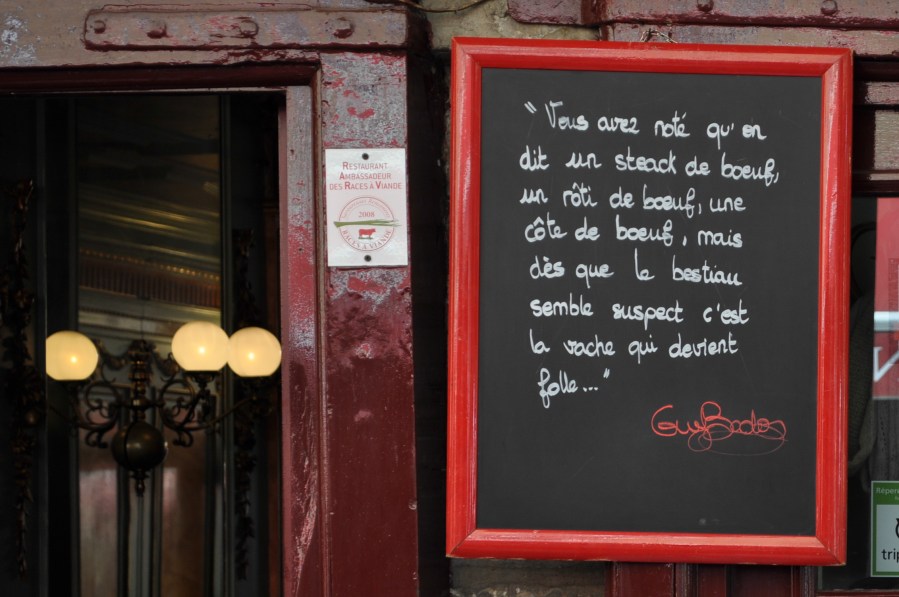 RESTAURANT
AMBASSADEUR
DES RACES À VIANDE
2008
RACES À VIANDE
"Vous avez noté qu'on
dit un steack de boeuf,
un rôti de boeuf, une
côte de boeuf, mais
dès que le bestiau
semble suspect c'est
la vache qui devient
folle..."
Guy Bedos
Réper
trip